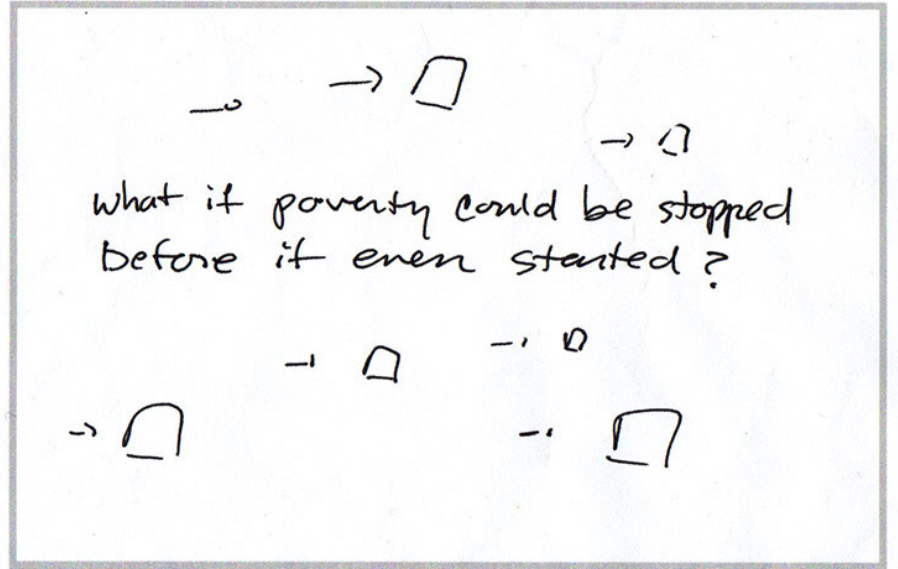 what if poverty could be stopped
before it even started?